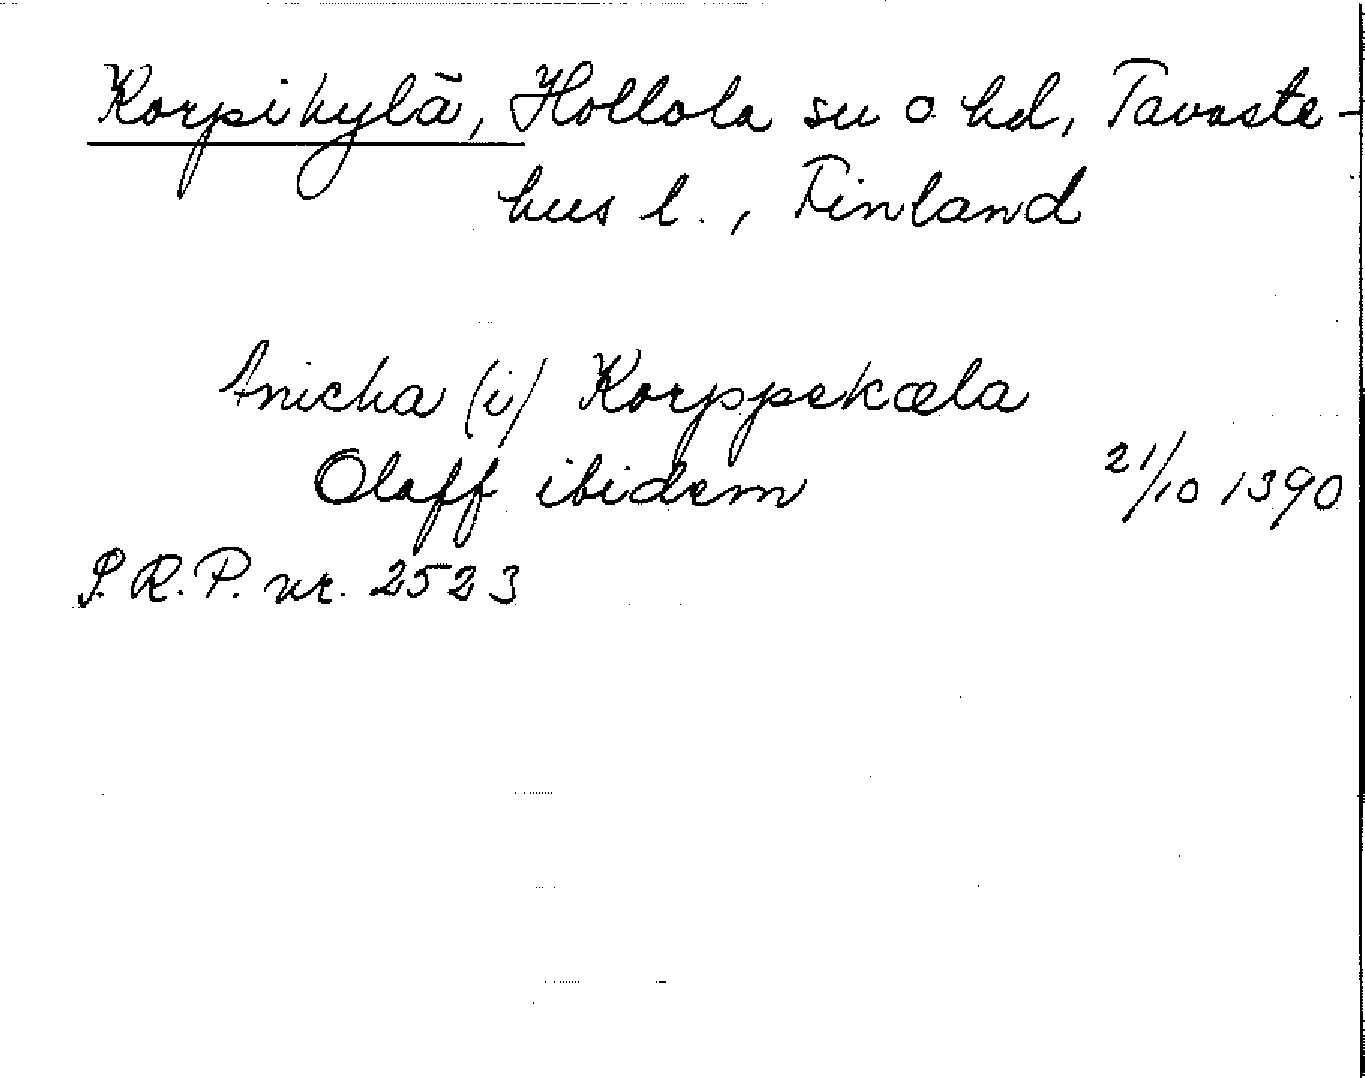 Korpikylä, Hollola su o hd, Tavaste-
hus l., Finland
Anicha (i) Korppekæla
Olaff ibidem 21/10 1390
S.R.P. nr. 2523